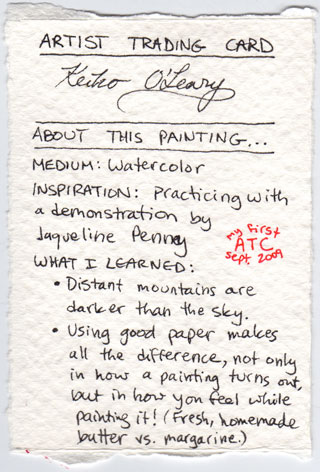 ARTIST TRADING CARD
Keiko O'Leary
ABOUT THIS PAINTING...
MEDIUM: Watercolor
INSPIRATION: Practicing with
a demonstration by
Jaqueline Penny
my first
ATC
sept. 2009
WHAT I LEARNED:
• Distant mountains are
darker than the sky.
• Using good paper makes
all the difference, not only
in how a painting turns out,
but in how you feel while
painting it! (Fresh, homemade
butter vs. margarine.)